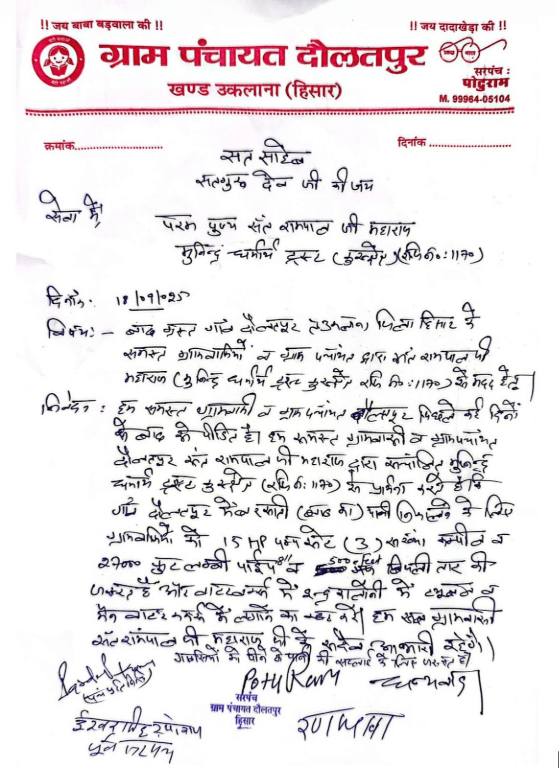 !! जय बाबा बड़वाला की !!
!! जय दादाखेड़ा की !!
ग्राम पंचायत दौलतपुर
खण्ड उकलाना (हिसार)
सरपंच :
पोटुराम
M. 99964-05104
क्रमांक
दिनांक
सत साहेब
सतगुरु देव जी की जय
सेवा में,
परम पुज्य संत रामपाल जी महाराज
मुनिन्द्र धर्मार्थ ट्रस्ट (कुरुक्षेत्र) (रजि नं०: 1170)
दिनांक: 18/09/025
विषय:- बाढ़ ग्रस्त गांव दौलतपुर जिला हिसार के
समस्त ग्रामवासियों व ग्राम पंचायत द्वारा संत रामपाल जी
महाराज (मुनिन्द्र धर्मार्थ ट्रस्ट कुरुक्षेत्र रजि नं०: 1170) से मदद हेतु।
निवेदन: हम समस्त ग्रामवासी व ग्राम पंचायत दौलतपुर पिछले कई दिनों
से बाढ़ से पीडित है। हम समस्त ग्रामवासी व ग्राम पंचायत
दौलतपुर संत रामपाल जी महाराज द्वारा संचालित मुनिन्द्र
धर्मार्थ ट्रस्ट कुरुक्षेत्र (रजि नं०: 1170) से प्रार्थना करते है कि
गांव दौलतपुर में (बाढ़ का) पानी निकालने के लिए
ग्रामवासियों को 15 HP पम्प सेट (3) व
2700 फुट लम्बी पाईप 8" व 500 feet बिजली तार की
जरूरत है और वाटरवर्क्स में व
में लगाने का करें। हम सब ग्रामवासी
संत रामपाल जी महाराज जी के सदैव आभारी रहेंगे।
ग्रामवासियों को पीने के पानी की सप्लाई के लिए जरूरत है।
Potu Ram
धन्यवाद
सरपंच
ग्राम पंचायत दौलतपुर
हिसार